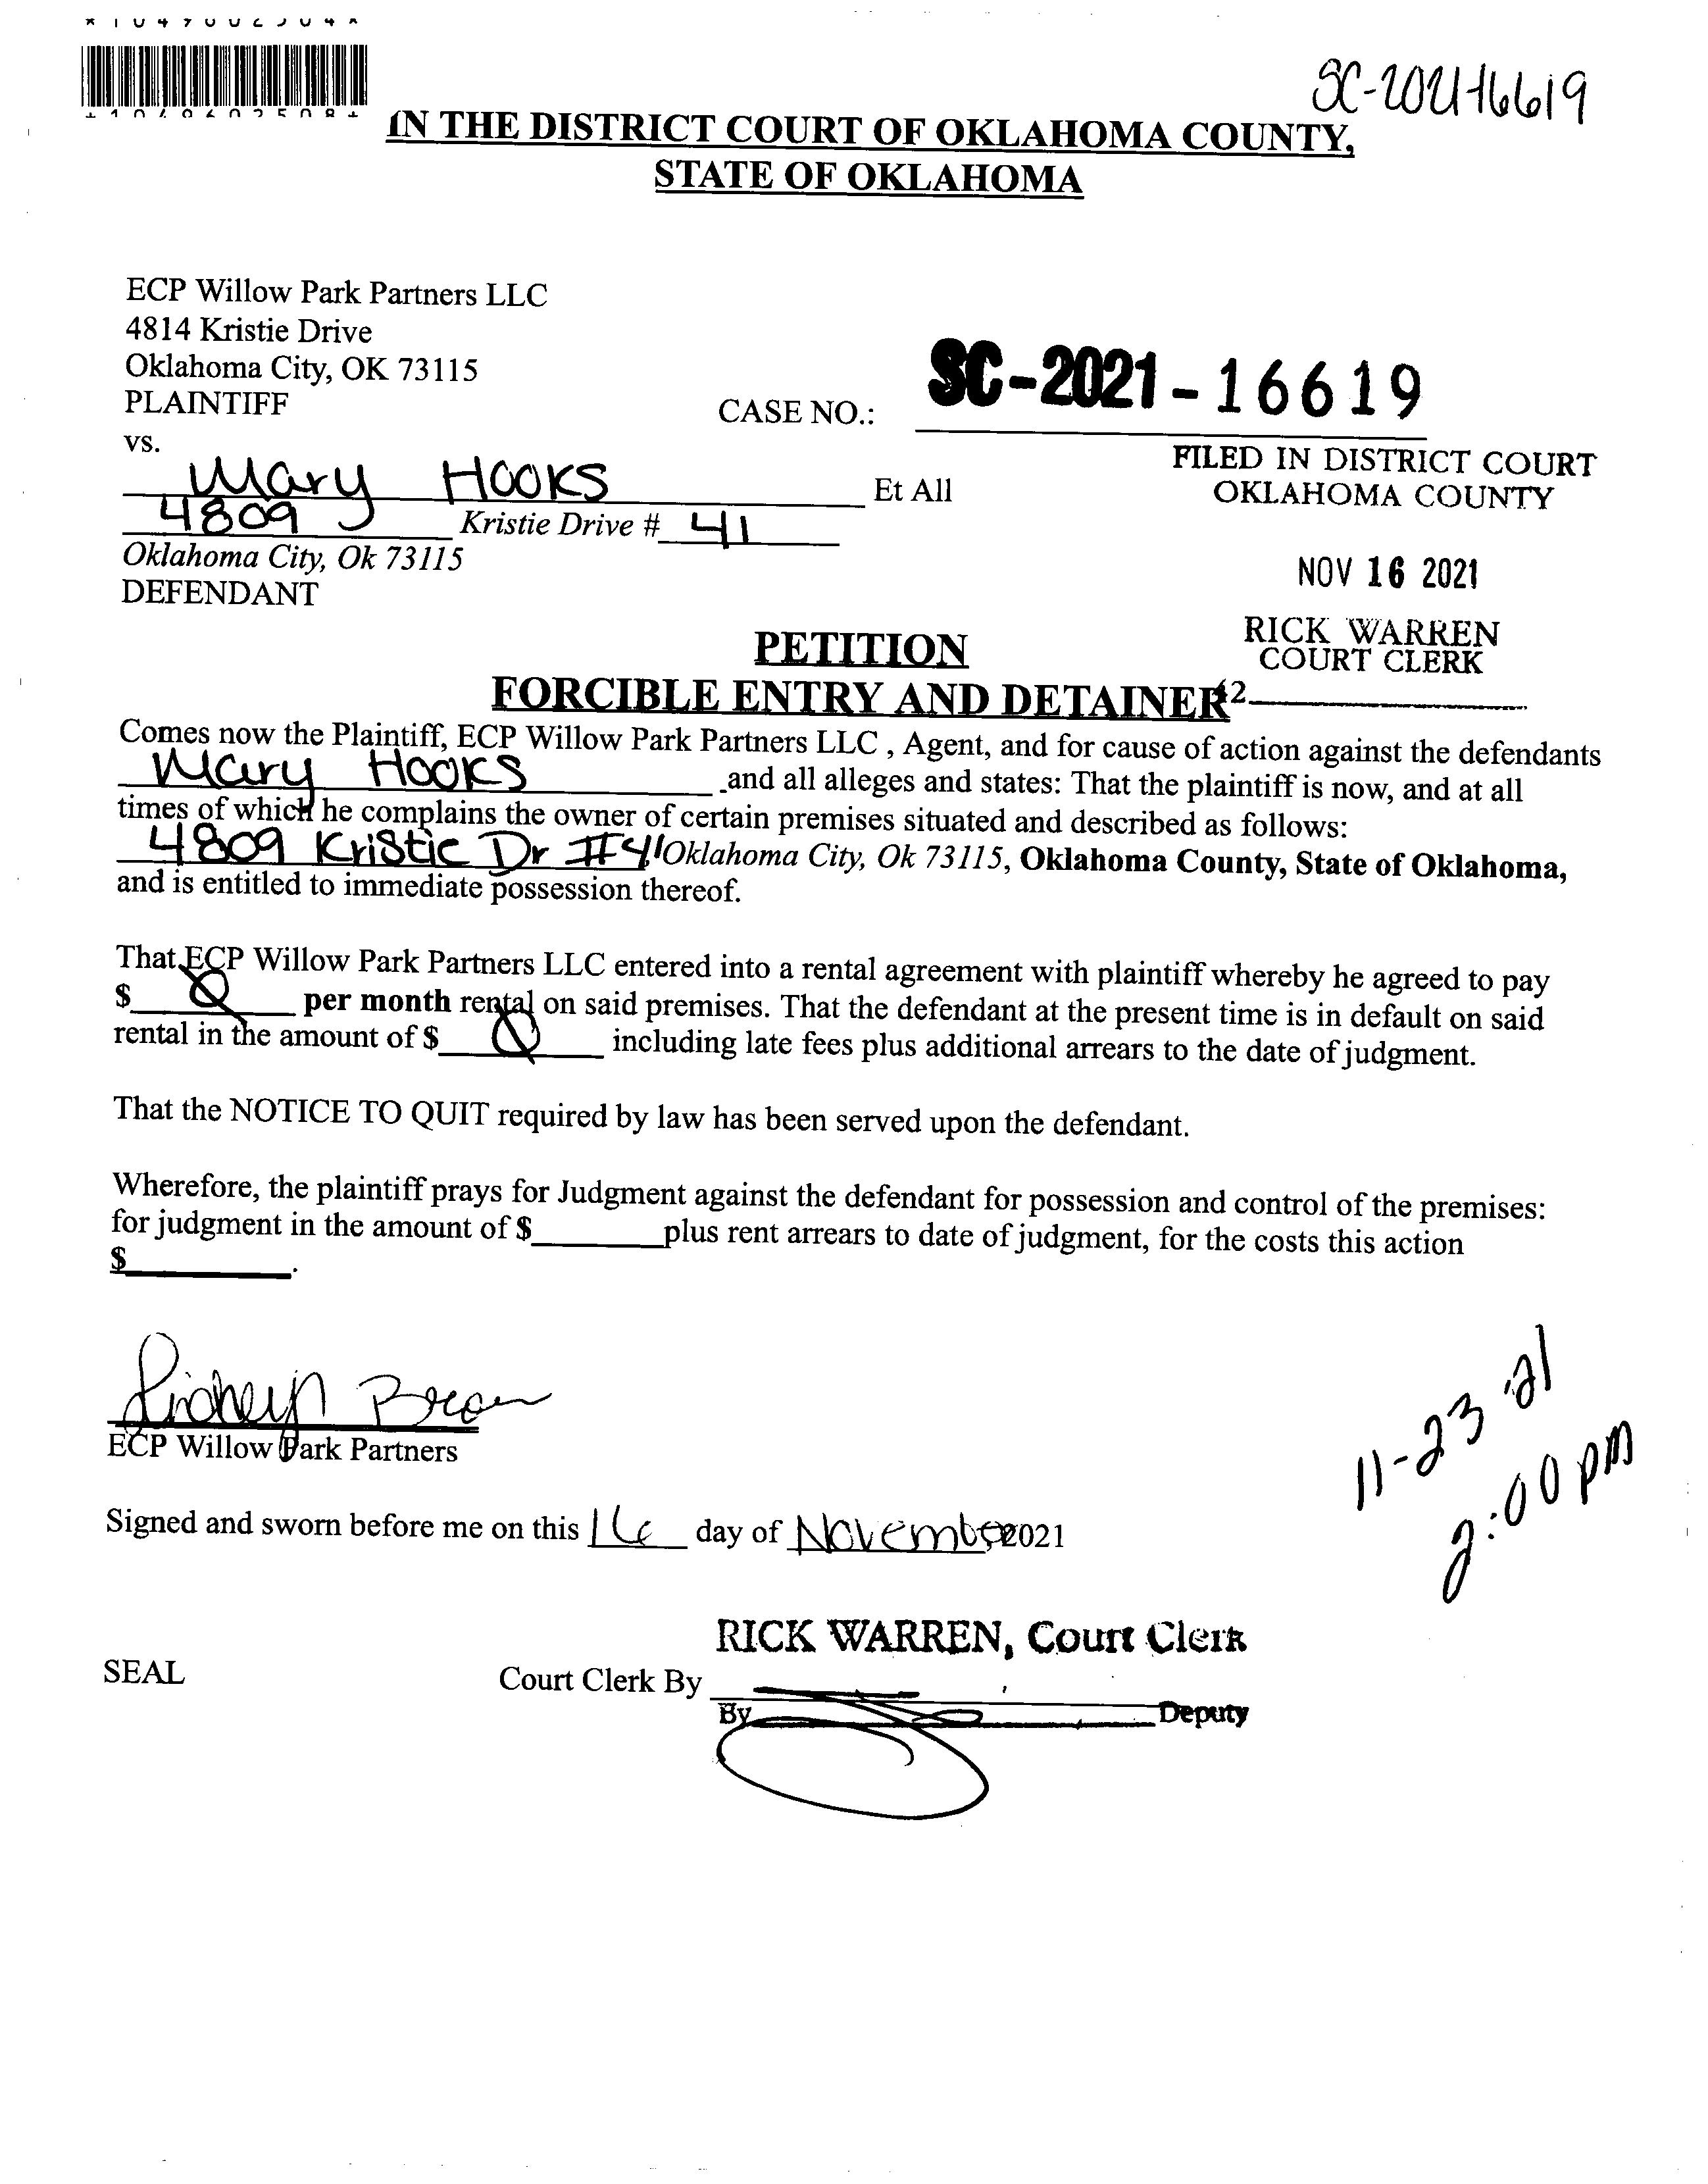 SC-2021-16619
IN THE DISTRICT COURT OF OKLAHOMA COUNTY,
STATE OF OKLAHOMA
ECP Willow Park Partners LLC
4814 Kristie Drive
Oklahoma City, OK 73115
PLAINTIFF
CASE NO.: SC-2021-16619
vs.
Mary Hooks Et All
4809 Kristie Drive # 41
Oklahoma City, Ok 73115
DEFENDANT
FILED IN DISTRICT COURT
OKLAHOMA COUNTY
NOV 16 2021
RICK WARREN
COURT CLERK
42
PETITION
FORCIBLE ENTRY AND DETAINER
Comes now the Plaintiff, ECP Willow Park Partners LLC , Agent, and for cause of action against the defendants
Mary Hooks and all alleges and states: That the plaintiff is now, and at all
times of which he complains the owner of certain premises situated and described as follows:
4809 Kristie Dr #41 Oklahoma City, Ok 73115, Oklahoma County, State of Oklahoma,
and is entitled to immediate possession thereof.
That ECP Willow Park Partners LLC entered into a rental agreement with plaintiff whereby he agreed to pay
$ Ø per month rental on said premises. That the defendant at the present time is in default on said
rental in the amount of $ Ø including late fees plus additional arrears to the date of judgment.
That the NOTICE TO QUIT required by law has been served upon the defendant.
Wherefore, the plaintiff prays for Judgment against the defendant for possession and control of the premises:
for judgment in the amount of $ plus rent arrears to date of judgment, for the costs this action
$ .
ECP Willow Park Partners
11-23-21
2:00 pm
Signed and sworn before me on this 16 day of November, 2021
RICK WARREN, Court Clerk
SEAL Court Clerk By
By Deputy